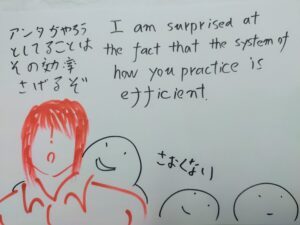 アンタがやろう
としてることは
その効率
さげるぞ
I am surprised at
the fact that the system of
how you practice is
efficient.
さむくない